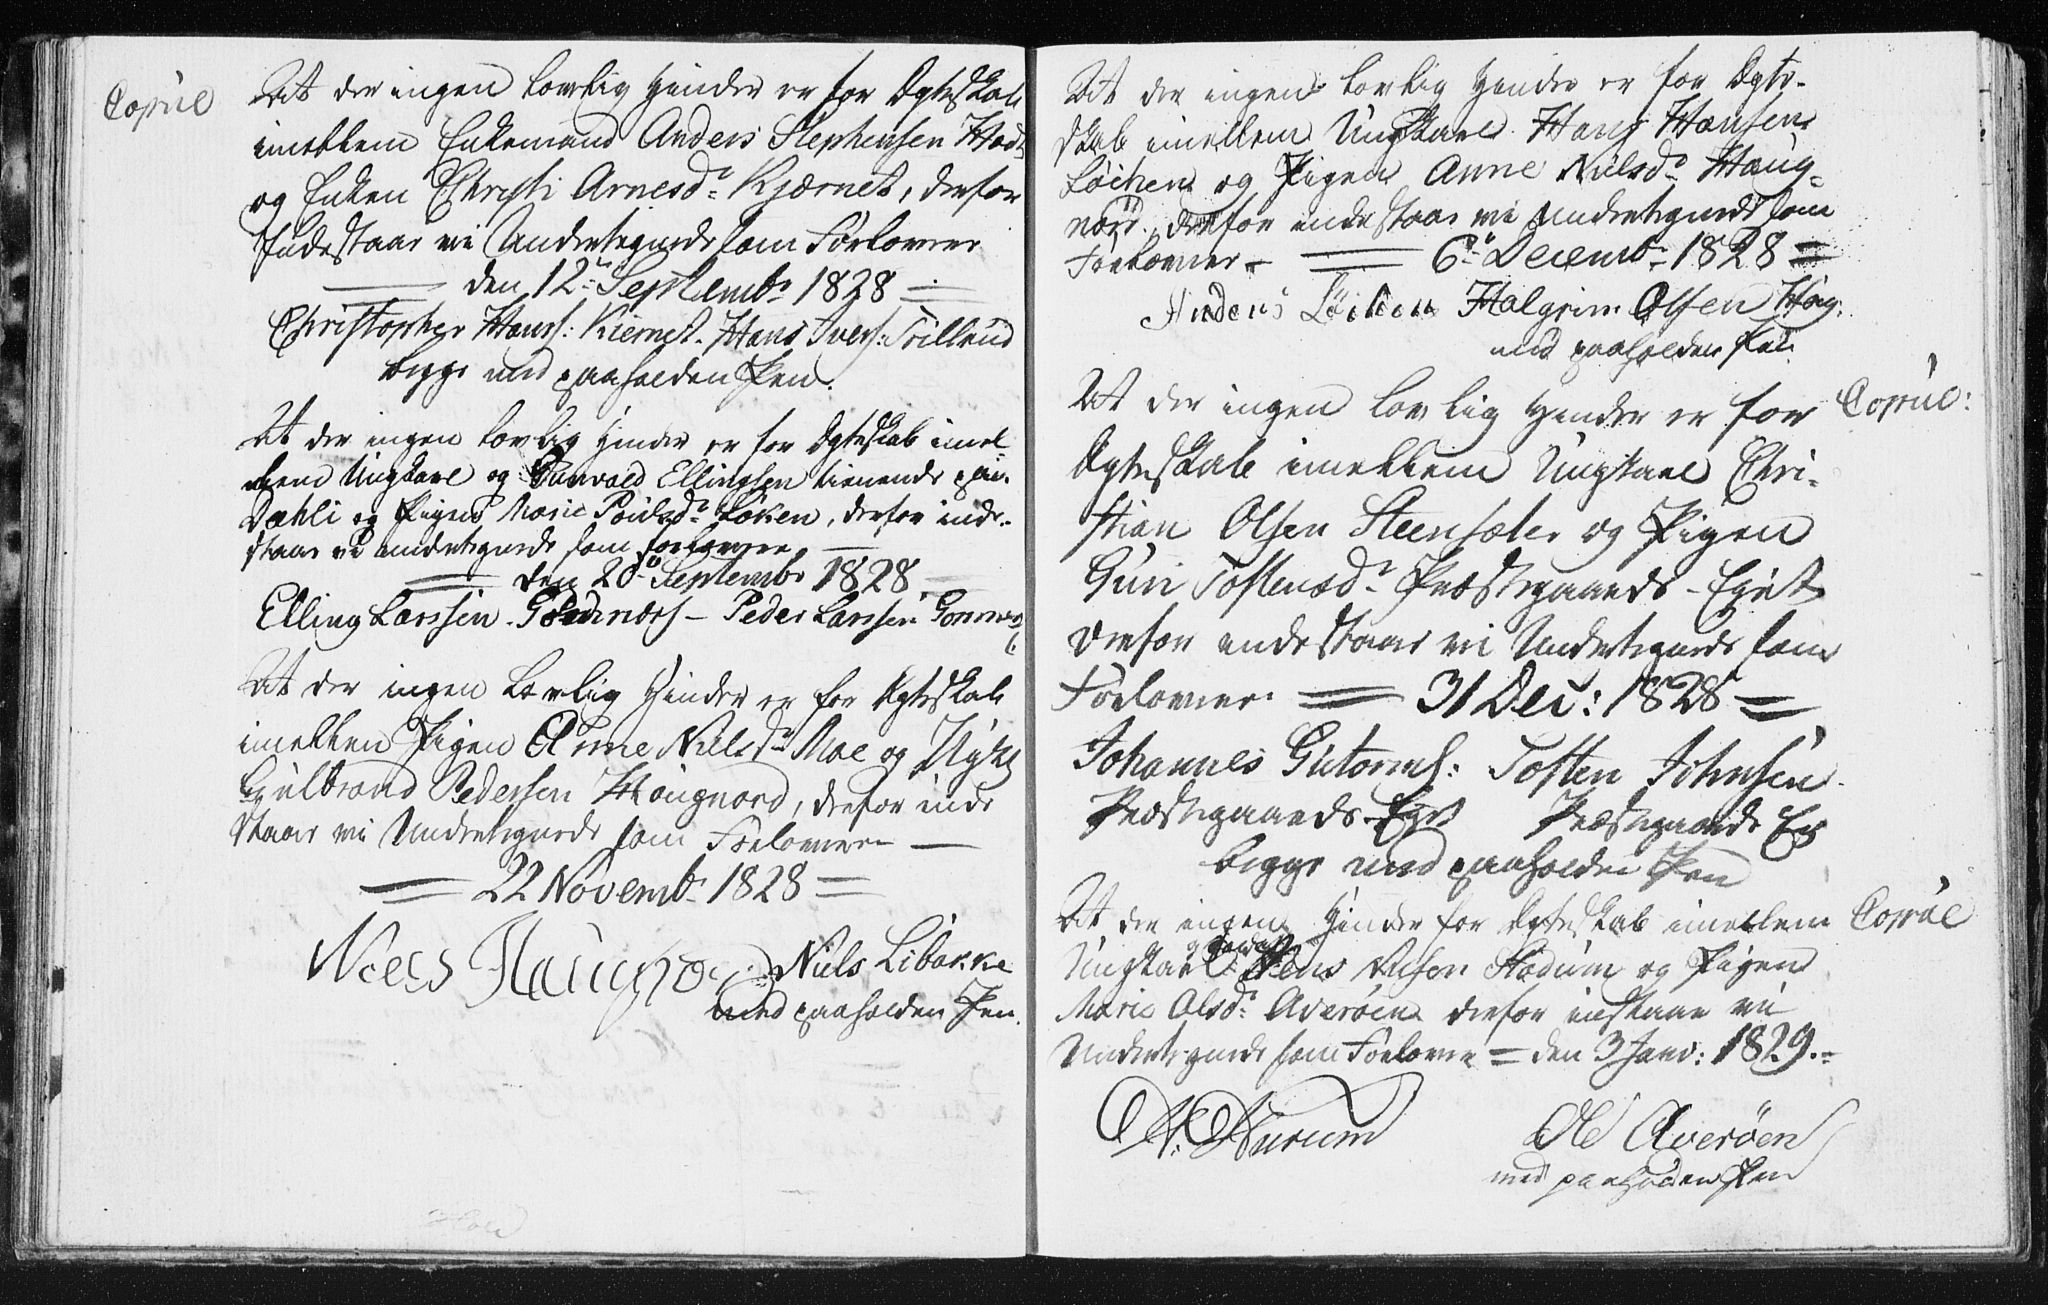 Copul
At der ingen lovlig Hinder er for Ægteskab
imellem Enkemand Anders Stephensen
og Enken Christi Arnesdr Kjærnet, derfor
Indestaar vi Undertegnede som Forlovere
den 12te Septembr 1828
Christopher Hans: Kiernet. Hans Ivers: Trillrud
begge med paaholden Pen.
At der ingen lovlig Hinder er for Ægteskab imel
lem Ungkarl og Ellingsen tienende paa
Dæhli og Pigen Marie Poulsdr Løken, derfor inde-
staar vi undertegnede som forlovere
den 20de Septembr 1828
Elling Larssen Peder Larssen
At der ingen Lovlig Hinder er for Ægteskab
imellem Pigen Anne Nielsdr Moe og
Gulbrand Pedersen Haugnord, derfor inde
staar vi Undertegnede som Forlovere
22 Novembr 1828
Niels Libakke
med paaholden Pen.
At der ingen lovlig Hinder er for Ægte-
skab imellem Ungkarl Hans Hansen
Löchen og Pigen Anne Nielsdr Haug-
nord, derfor indestaar vi Undertegnede som
Forlovere 6te Decembr 1828
Anders Löchen Halgrim Olsen Haug:
med paaholden Pen.
At der ingen lovlig Hinder er for Copul:
Ægteskab imellem Ungkarl Chri-
stian Olsen Steensæter og Pigen
Guri Tostensdr Præstegaards-Ejet
derfor indestaar vi Undertegnede som
Forlovere 31 Dec: 1828
Johannes Gutorms: Tosten Johnsen
Præstegaards-Ejet Præstegaards Ej
begge med paaholden Pen
At der ingen Hinder for Ægteskab imellem Copul
Ungkarl Jens og Pigen
Marie Olsdr Averøen derfor indstaar vi
Undertegnede som Forlovere den 3 Janv: 1829.
Ole Averøen
med paaholden Pen